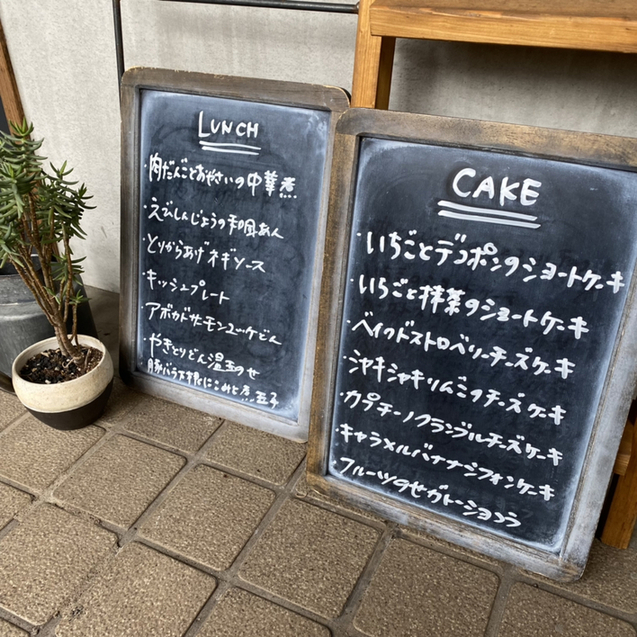 LUNCH
・肉だんごとおやさいの中華煮
・えびしんじょうの和風あん
・とりからあげネギソース
・キッシュプレート
・アボカドサーモンユッケどん
・やきとりどん温玉のせ
・豚バラ大根にこみと煮玉子
CAKE
・いちごとデコポンのショートケーキ
・いちごと抹茶のショートケーキ
・ベイクドストロベリーチーズケーキ
・シャキシャキりんごのチーズケーキ
・カプチーノクランブルチーズケーキ
・キャラメルバナナシフォンケーキ
・フルーツのせガトーショコラ